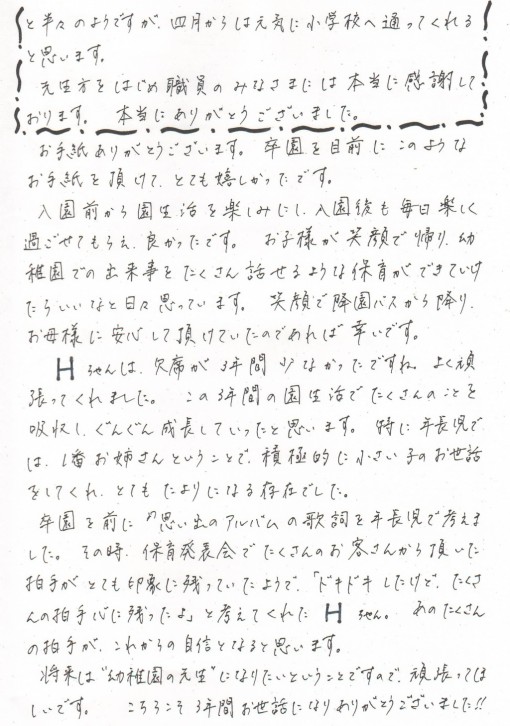 と半々のようですが、四月からは元気に小学校へ通ってくれる
と思います。
先生方をはじめ職員のみなさまには本当に感謝して
おります。 本当にありがとうございました。
お手紙ありがとうございます。卒園を目前にこのような
お手紙を頂けて、とても嬉しかったです。
入園前から園生活を楽しみにし、入園後も毎日楽しく
過ごせてもらえ、良かったです。 お子様が笑顔で帰り、幼
稚園での出来事をたくさん話せるような保育ができていけ
たらいいなと日々思っています。 笑顔で降園バスから降り、
お母様に安心して頂けていたのであれば幸いです。
Hちゃんは、欠席が3年間少なかったですね。よく頑
張ってくれました。この3年間の園生活でたくさんのことを
吸収し、ぐんぐん成長していったと思います。 特に年長児で
は、1番お姉さんということで、積極的に小さい子のお世話
をしてくれ、とてもたよりになる存在でした。
卒園を前に『思い出のアルバム』の歌詞を年長児で考えま
した。その時、保育発表会でたくさんのお客さんから頂いた
拍手がとても印象に残っていたようで、「ドキドキしたけど、たくさ
んの拍手心に残ったよ」と考えてくれたHちゃん。 あのたくさん
の拍手が、これからの自信となると思います。
将来は"幼稚園の先生"になりたいということですので、頑張ってほ
しいです。 こちらこそ3年間お世話になりありがとうございました!!